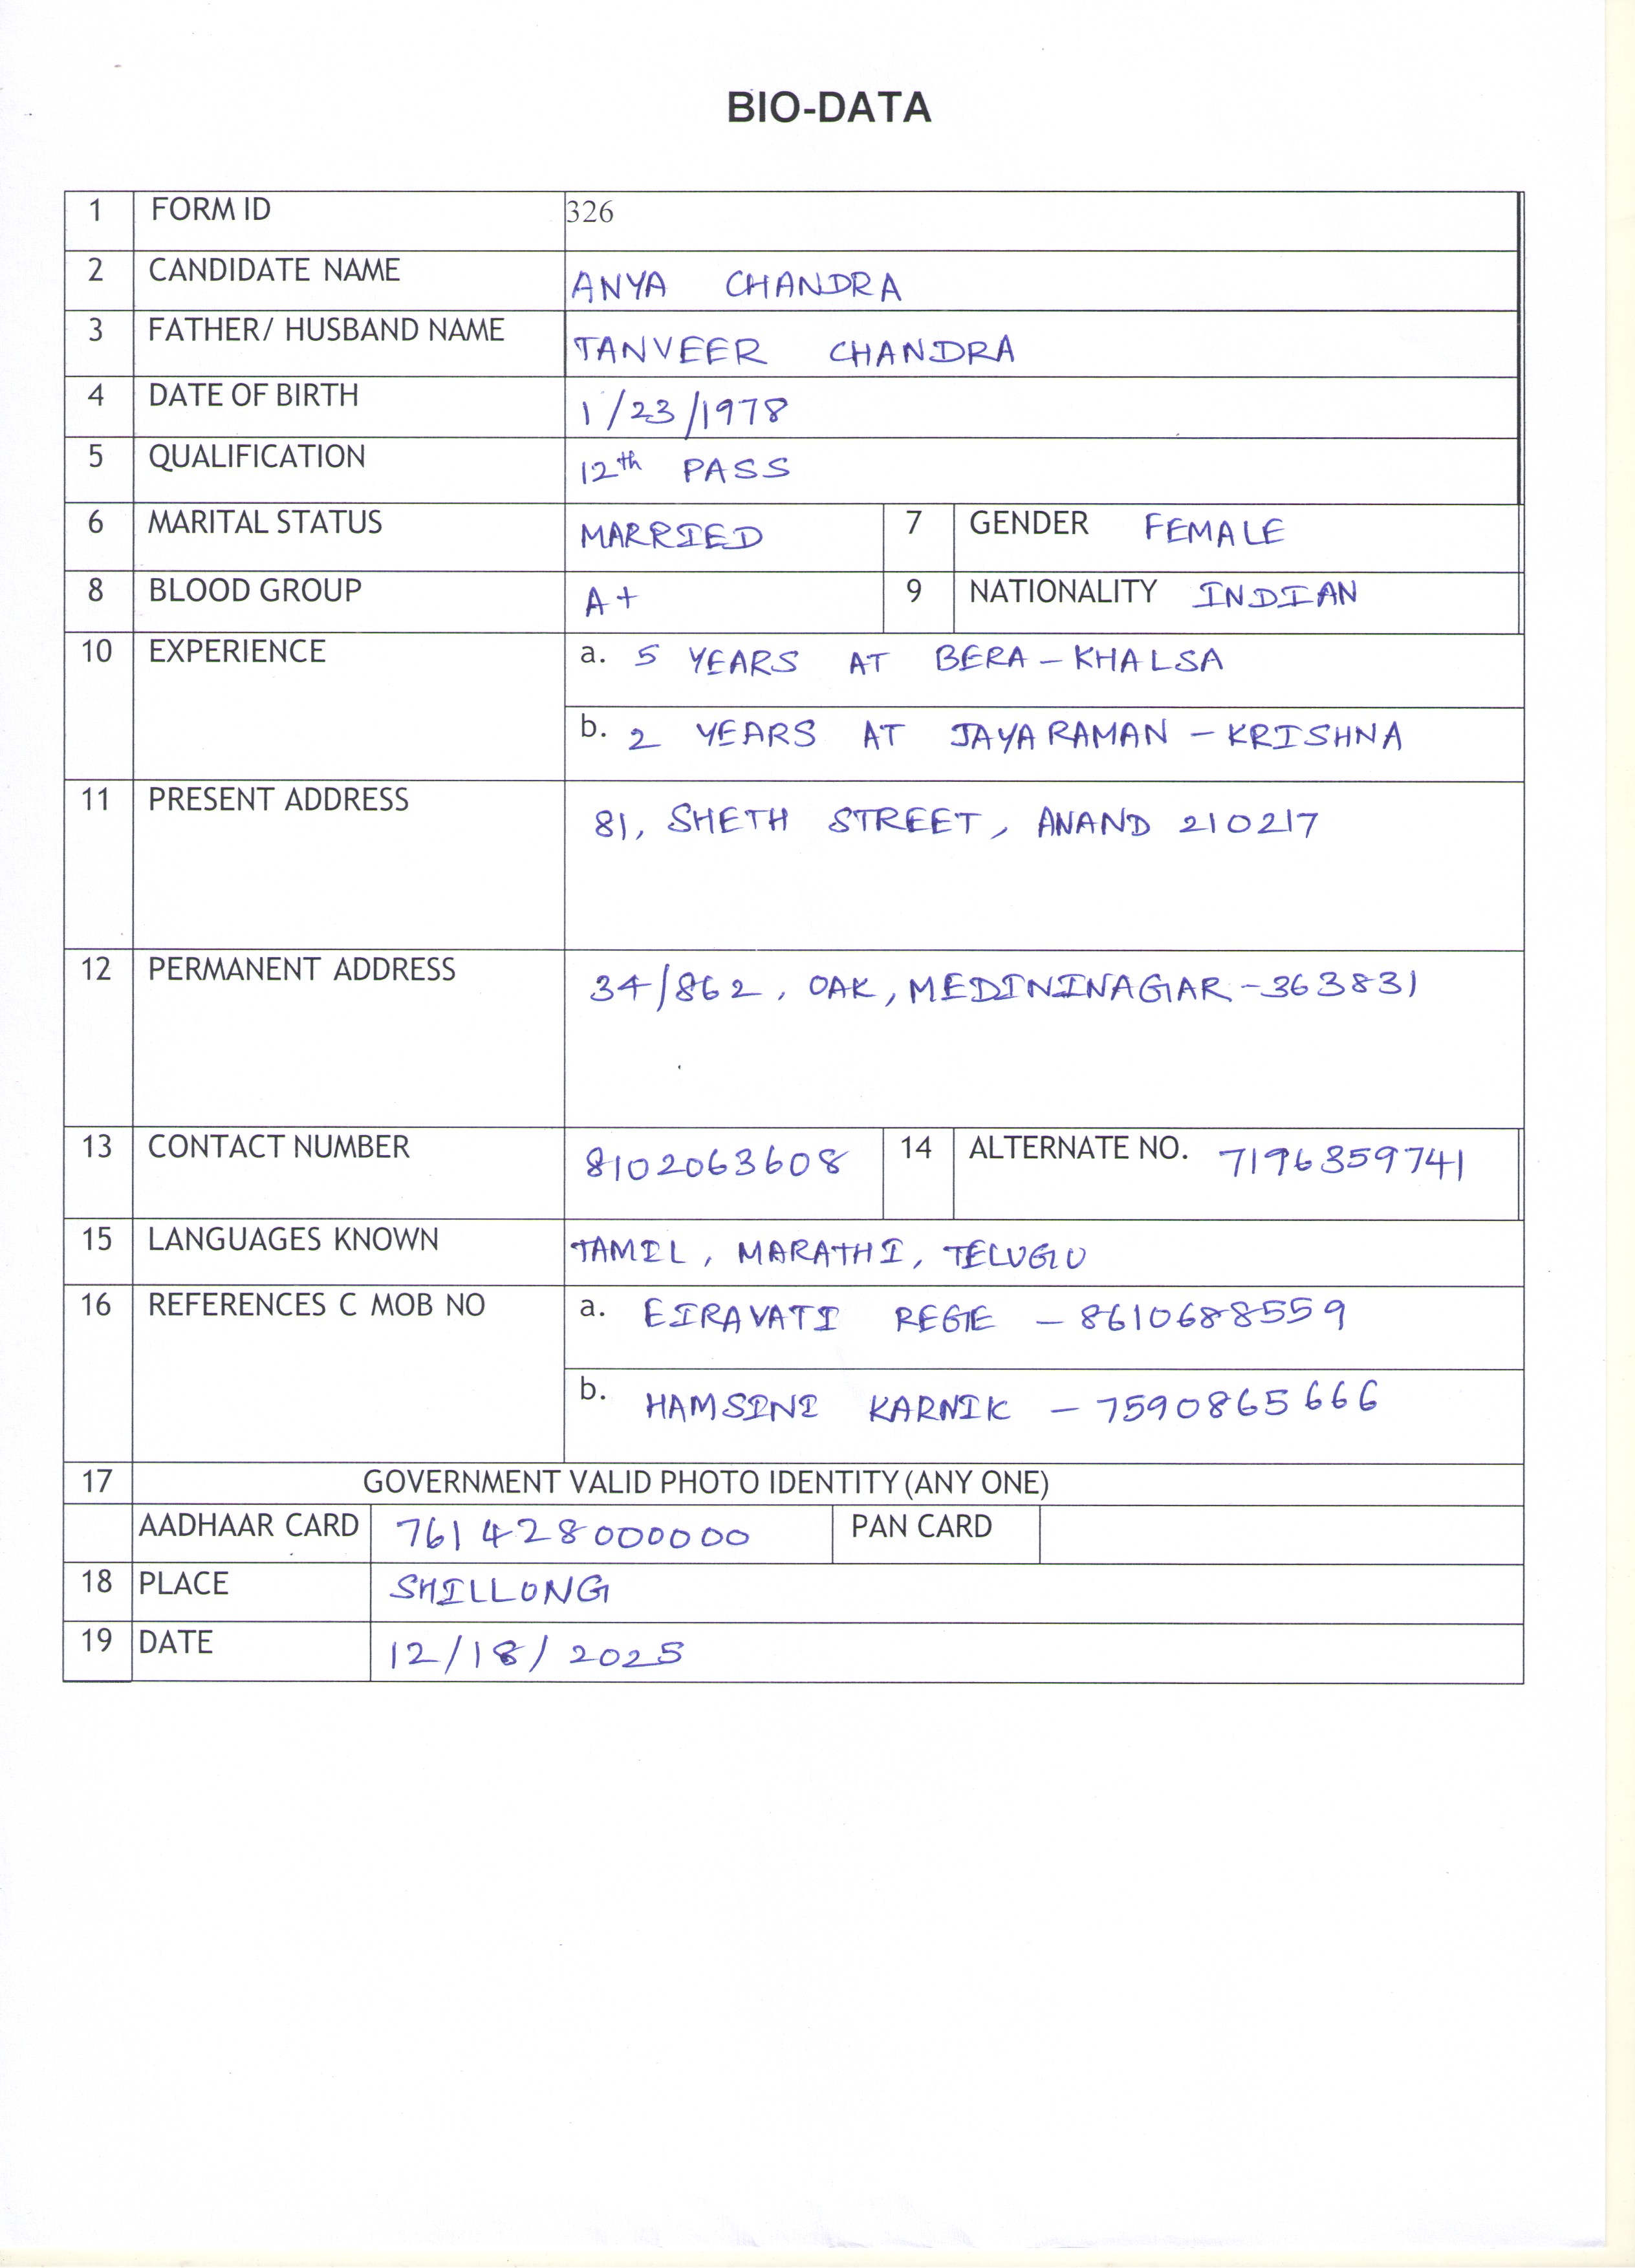 BIO-DATA
1 FORM ID 326
2 CANDIDATE NAME ANYA CHANDRA
3 FATHER/ HUSBAND NAME TANVEER CHANDRA
4 DATE OF BIRTH 1/23/1978
5 QUALIFICATION 12th PASS
6 MARITAL STATUS MARRIED 7 GENDER FEMALE
8 BLOOD GROUP A+ 9 NATIONALITY INDIAN
10 EXPERIENCE a. 5 YEARS AT BERA - KHALSA
b. 2 YEARS AT JAYARAMAN - KRISHNA
11 PRESENT ADDRESS 81, SHETH STREET, ANAND 210217
12 PERMANENT ADDRESS 34/862, OAK, MEDININAGAR - 363831
13 CONTACT NUMBER 8102063608 14 ALTERNATE NO. 7196359741
15 LANGUAGES KNOWN TAMIL, MARATHI, TELUGU
16 REFERENCES C MOB NO a. EIRAVATI REGE - 8610688559
b. HAMSINI KARNIK - 7590865666
17 GOVERNMENT VALID PHOTO IDENTITY (ANY ONE)
AADHAAR CARD 761428000000 PAN CARD
18 PLACE SHILLONG
19 DATE 12/18/2025